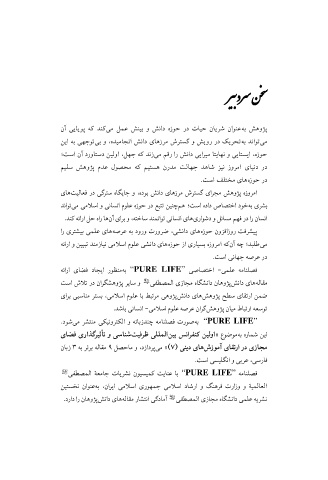 سخن سردبیر
پژوهش به‌عنوان شریان حیات در حوزه دانش و بینش عمل می‌کند که پویایی آن
می‌تواند به‌تحریک در رویش و گسترش مرزهای دانش انجامیده، و بی‌توجهی به این
حوزه، ایستایی و نهایتا میرایی دانش را رقم می‌زند که جهل، اولین دستاورد آن است؛
در دنیای امروز نیز شاهد جهالت مدرن هستیم که محصول عدم پژوهش سلیم
در حوزه‌های مختلف است.
امروزه پژوهش مجرای گسترش مرزهای دانش بوده، و جایگاه سترگی در فعالیت‌های
بشری به‌خود اختصاص داده است؛ هم‌چنین تتبع در حوزه علوم انسانی و اسلامی می‌تواند
انسان را در فهم مسائل و دشواری‌های انسانی توانمند ساخته، و برای آن‌ها راه حل ارائه کند.
پیشرفت روزافزون حوزه‌های دانشی، ضرورت ورود به عرصه‌های علمی بیشتری را
می‌طلبد؛ چه آن‌که امروزه بسیاری از حوزه‌های دانشی علوم اسلامی نیازمند تبیین و ارائه
در عرصه جهانی است.
فصلنامه علمی- اختصاصی "PURE LIFE" به‌منظور ایجاد فضای ارائه
مقاله‌های دانش‌پژوهان دانشگاه مجازی المصطفی ﷺ و سایر پژوهشگران در تلاش است
ضمن ارتقای سطح پژوهش‌های دانش‌پژوهی مرتبط با علوم اسلامی، بستر مناسبی برای
توسعه ارتباط میان پژوهش‌گران عرصه علوم اسلامی- انسانی باشد.
"PURE LIFE" به‌صورت فصلنامه چندزبانه و الکترونیکی منتشر می‌شود.
این شماره به‌موضوع «اولین کنفرانس بین‌المللی ظرفیت‌شناسی و تأثیرگذاری فضای
مجازی در ارتقای آموزش‌های دینی (۷)» می‌پردازد، و ماحصل ۹ مقاله برتر به ۳ زبان
فارسی، عربی و انگلیسی است.
فصلنامه "PURE LIFE" با عنایت کمیسیون نشریات جامعة المصطفی ﷺ
العالمیة و وزارت فرهنگ و ارشاد اسلامی جمهوری اسلامی ایران، به‌عنوان نخستین
نشریه علمی دانشگاه مجازی المصطفی ﷺ آمادگی انتشار مقاله‌های دانش‌پژوهان را دارد.